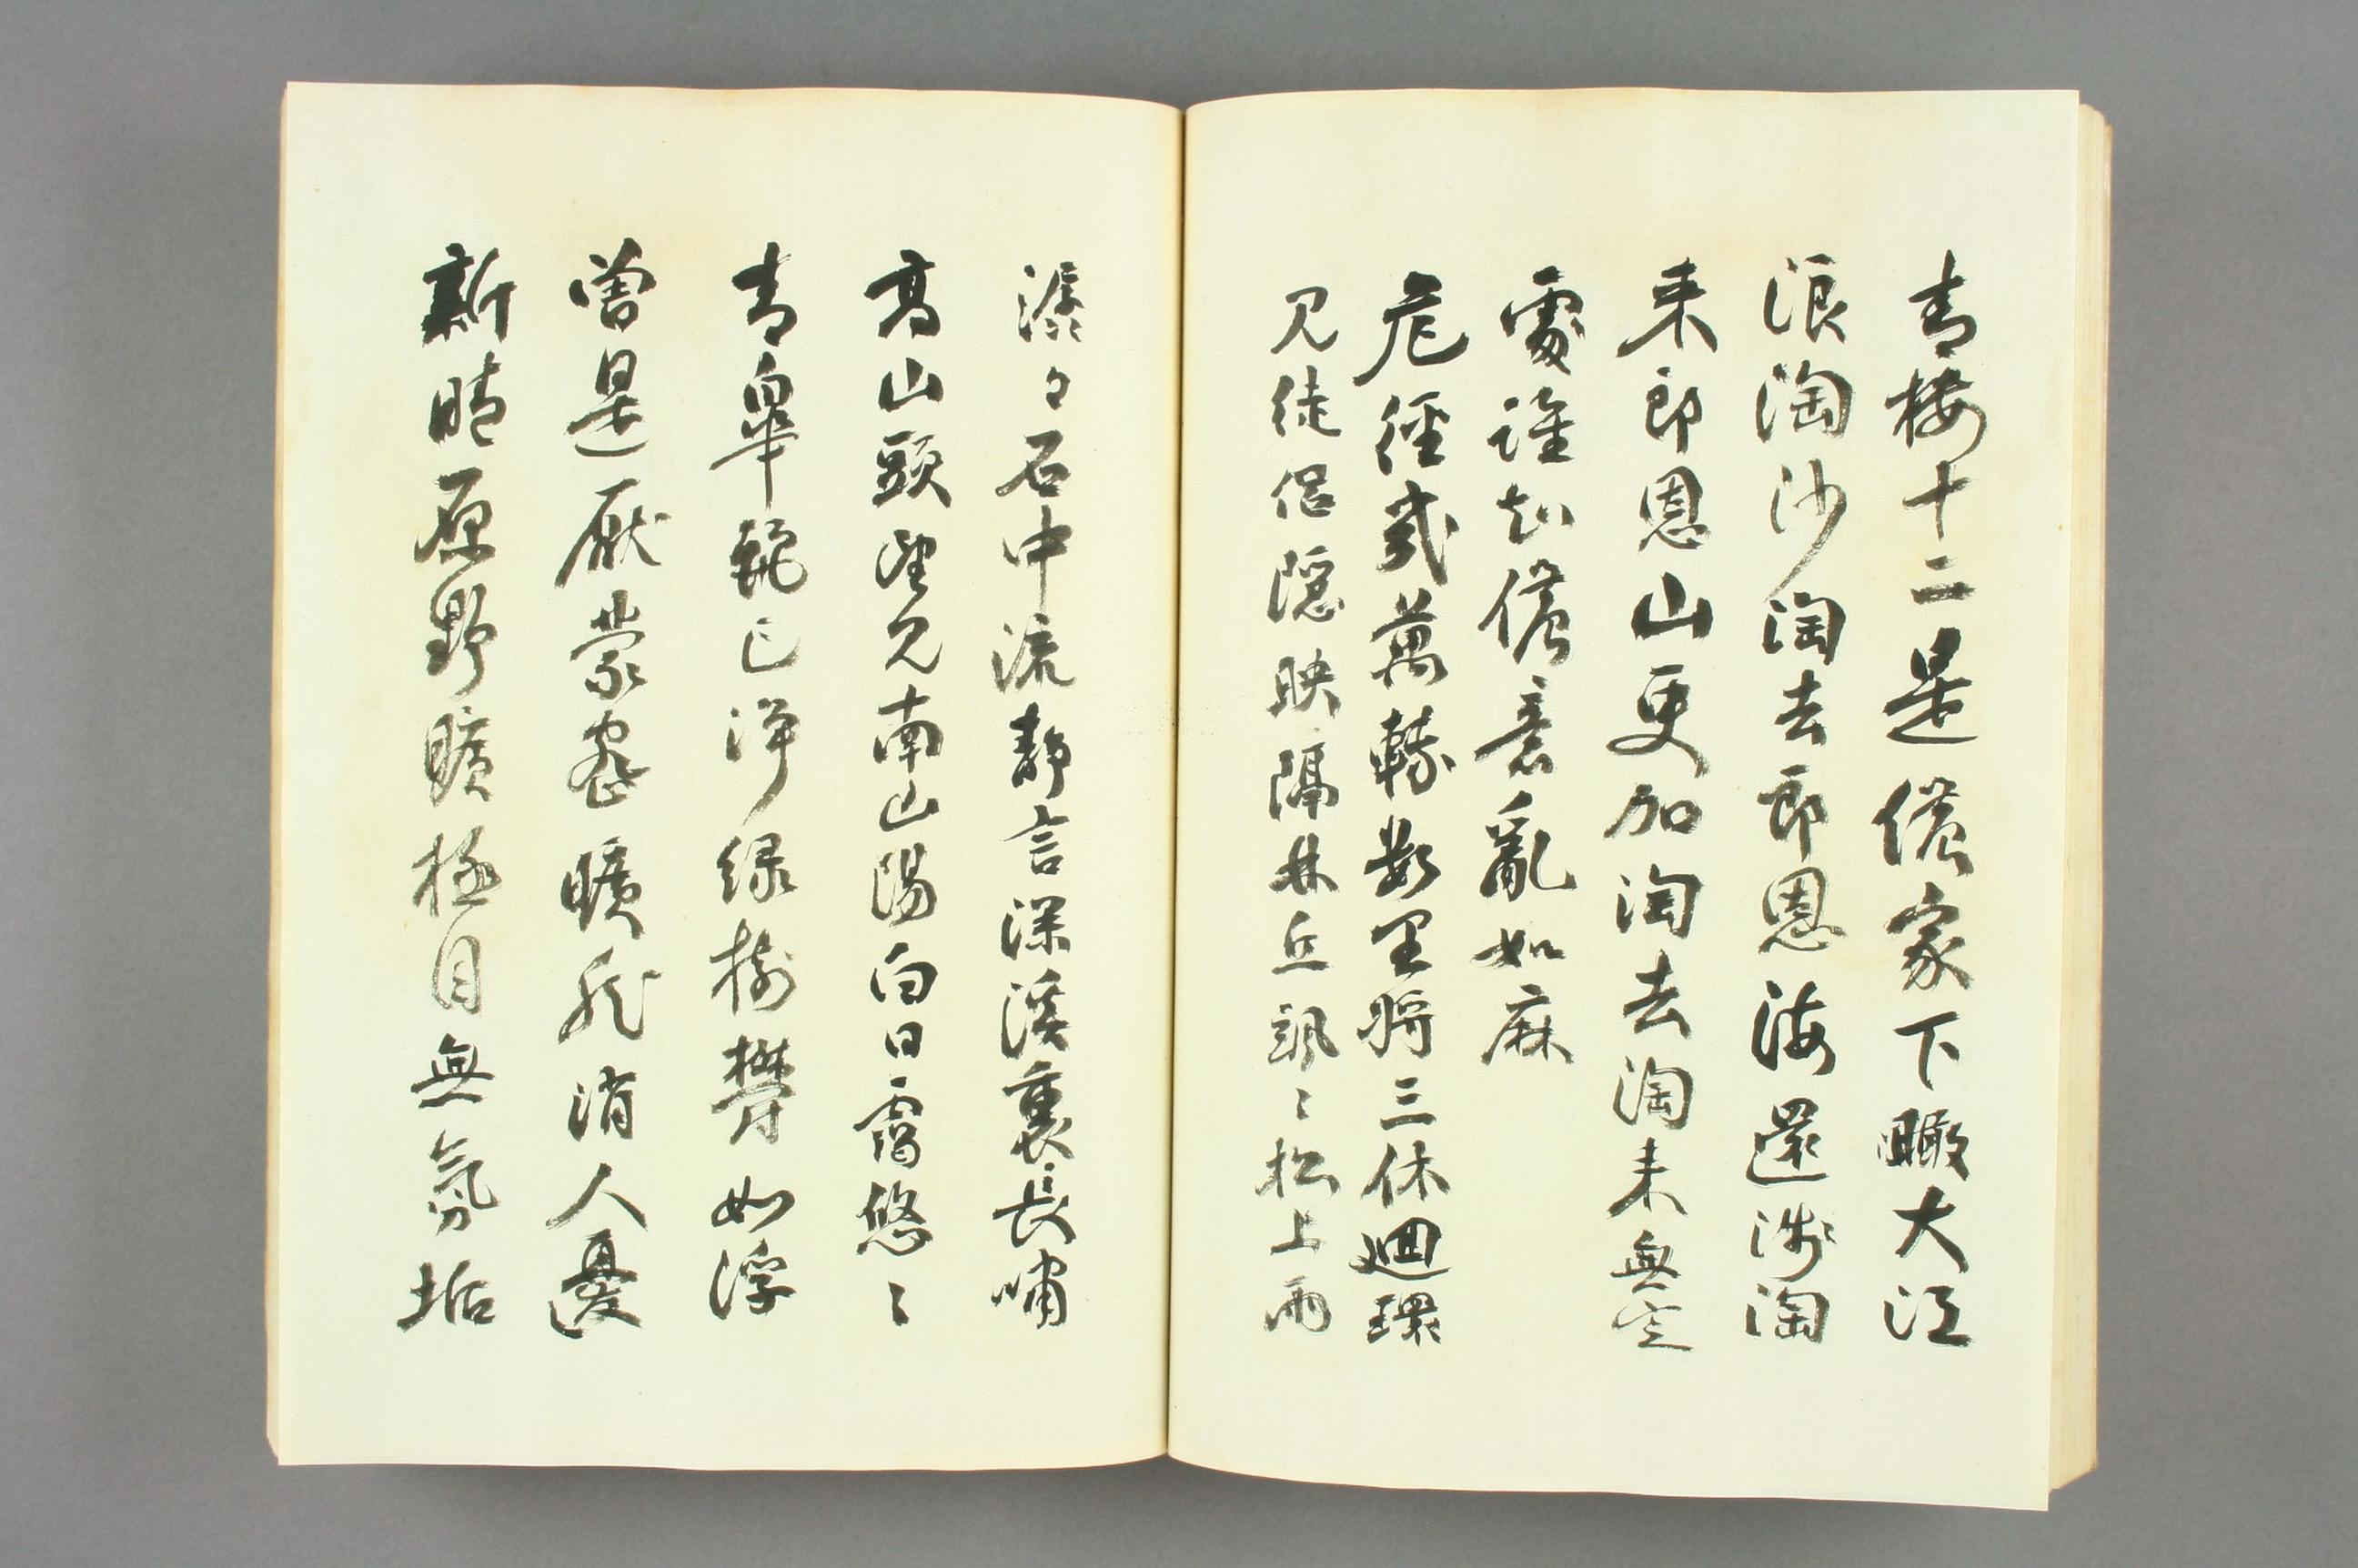 青楼十二是儂家下瞰大江
浪淘沙淘去郎恩海還淺淘
来郎恩山更加淘去淘来無定
處誰知儂意亂如麻
危徑幾萬轉數里將三休迴環
見徒侶隱映隔林丘颯〻松上雨
潺々石中流静言深溪裏長嘯
高山頭望見南山陽白日靄悠〻
青皐麗已浄緑樹欝如浮
曽是厭蒙密曠然消人憂
新晴原野曠極目無氛垢